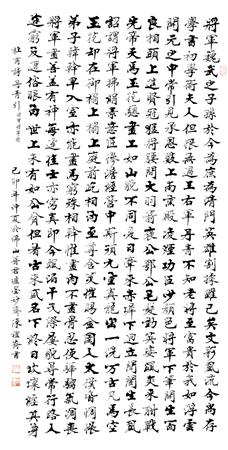 將軍魏武之子孫於今為庶為清門英雄割據雖已矣文彩風流今尚存
學書初學衛夫人但恨無過王右軍丹青不知老將至富貴於我如浮雲
開元之中常引見承恩數上南薰殿凌煙功臣少顏色將軍下筆開生面
良相頭上進賢冠猛將腰間大羽箭褒公鄂公毛髮動英姿颯爽來酣戰
先帝天馬玉花驄畫工如山貌不同是日牽來赤墀下迥立閶闔生長風
詔謂將軍拂絹素意匠慘澹經營中斯須九重真龍出一洗萬古凡馬空
玉花卻在御榻上榻上庭前屹相向至尊含笑催賜金圉人太僕皆惆悵
弟子韓幹早入室亦能畫馬窮殊相幹惟畫肉不畫骨忍使驊騮氣凋喪
將軍畫善蓋有神必逢佳士亦寫真即今飄泊干戈際屢貌尋常行路人
途窮反遭俗眼白世上未有如公貧但看古來盛名下終日坎壈纏其身
杜甫詩丹青引 贈曹將軍霸
己卯年中夏於佛山 陳 書